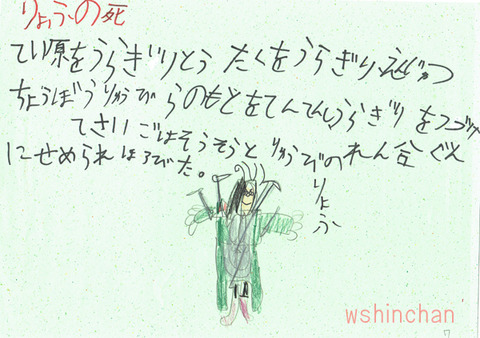 りょふの死
てい原をうらぎりとうたくをうらぎり、えんじゅつ
ちょうばうりゅうびらのもとをてんてんしうらぎりをつづけ
てさいごはそうそうとりゅうびのれん合ぐん
にせめられほろびた。
りょふ
wshinchan